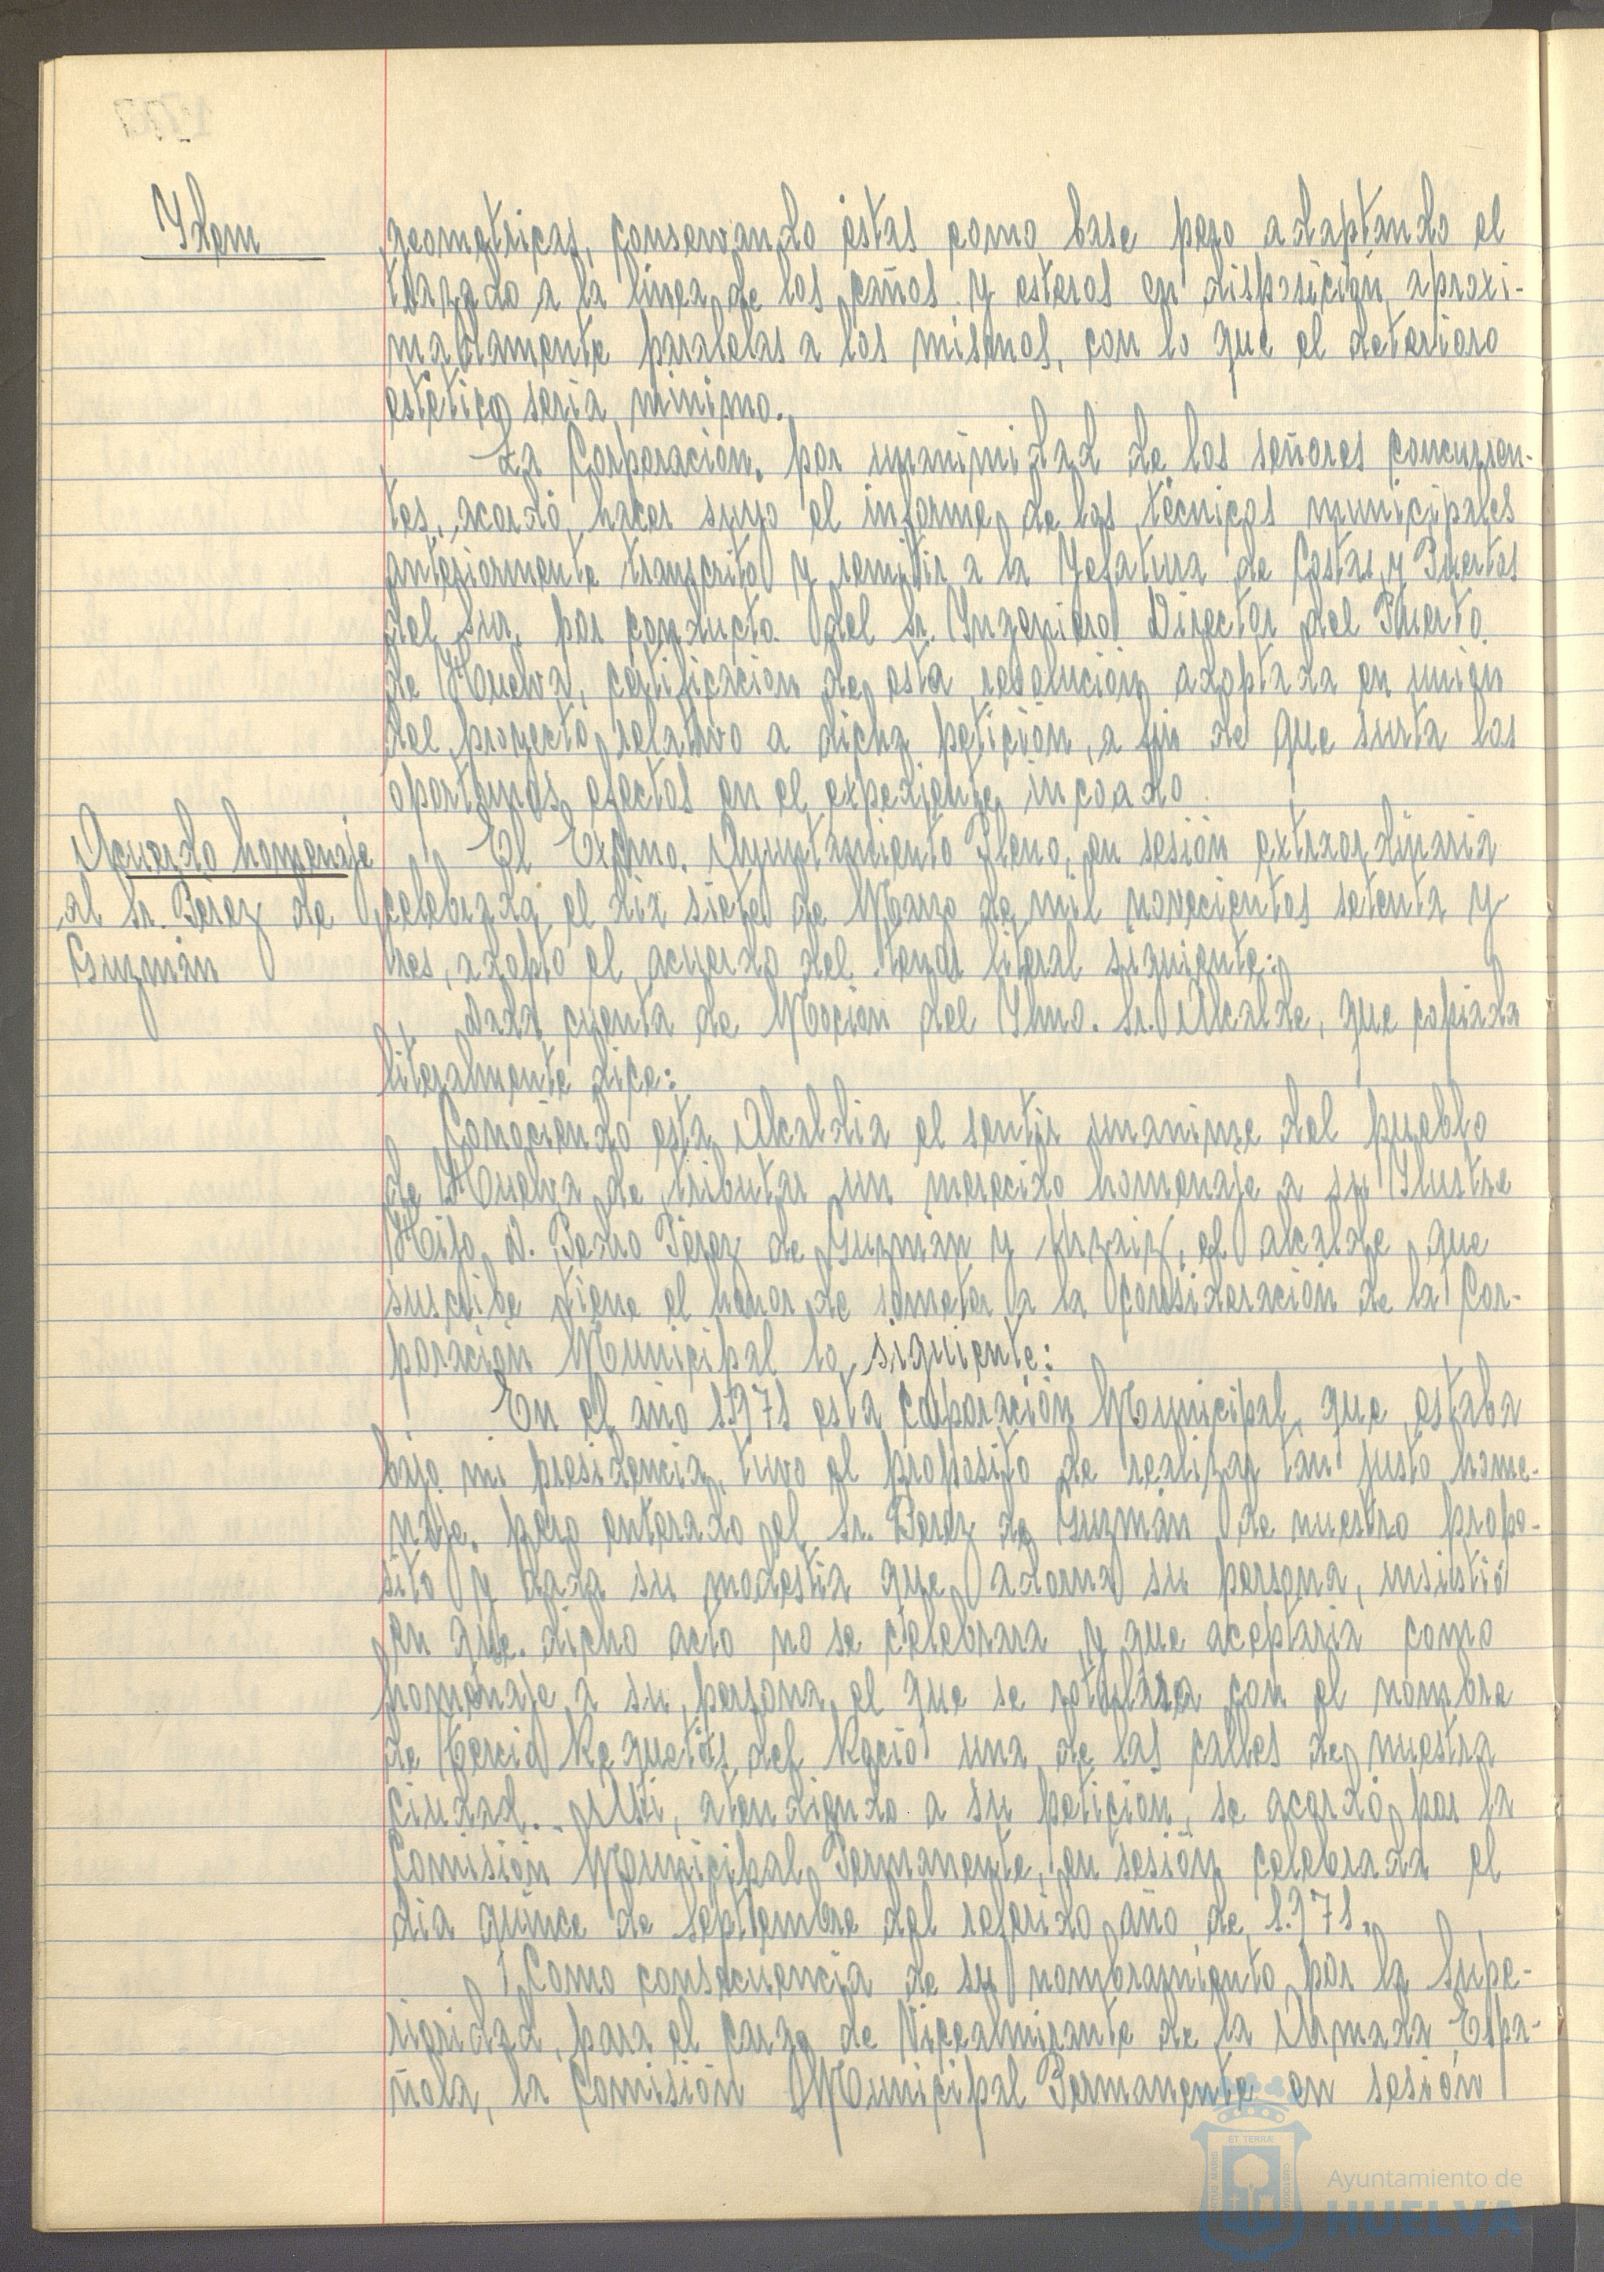 Idem
geometricas, conservando éstas como base pero adaptando el
trazado a la línea de los caños y esteros en disposición aproxi-
madamente paralelas a los mismos, con lo que el deterioro
estético sería mínimo.
La Corporación, por unanimidad de los señores concurren-
tes, acordó hacer suyo el informe de los técnicos municipales
anteriormente transcrito y remitir a la Jefatura de Costas y Puertos
del Sur, por conducto del Sr. Ingeniero Director del Puerto
de Huelva, certificación de esta resolución adoptada en unión
del proyecto relativo a dicha petición, a fin de que surta los
oportunos efectos en el expediente incoado.
Acuerdo homenaje
al Sr. Perez de
Guzmán
El Excmo. Ayuntamiento Pleno, en sesión extraordinaria
celebrada el dia siete de Marzo de mil novecientos setenta y
tres, adoptó el acuerdo del tenor literal siguiente:
Dada cuenta de Moción del Ilmo. Sr. Alcalde, que copiada
literalmente dice:
Conociendo esta Alcaldia el sentir unanime del pueblo
de Huelva de tributar un merecido homenaje a su Ilustre
Hijo D. Pedro Pérez de Guzmán y Urzaiz, el alcalde que
suscribe tiene el honor de someter a la consideración de la Cor-
poración Municipal lo siguiente:
En el año 1.971 esta Corporación Municipal, que estaba
bajo mi presidencia, tuvo el proposito de realizar tan justo home-
naje, pero enterado el Sr. Perez de Guzmán de nuestro propo-
sito y dada su modestia que adorna su persona, insistió
en que dicho acto no se celebrara y que aceptaria como
homenaje a su persona, el que se rotulara con el nombre
de Tercio Requetés del Rocio una de las calles de nuestra
ciudad. Asi, atendiendo a su petición, se acordó por la
Comisión Municipal Permanente, en sesión celebrada el
dia quince de septiembre del referido año de 1.971.
Como consecuencia de su nombramiento por la Supe-
rioridad, para el cargo de Vicealmirante de la Armada Espa-
ñola, la Comisión Municipal Permanente en sesión
Ayuntamiento de
HUELVA